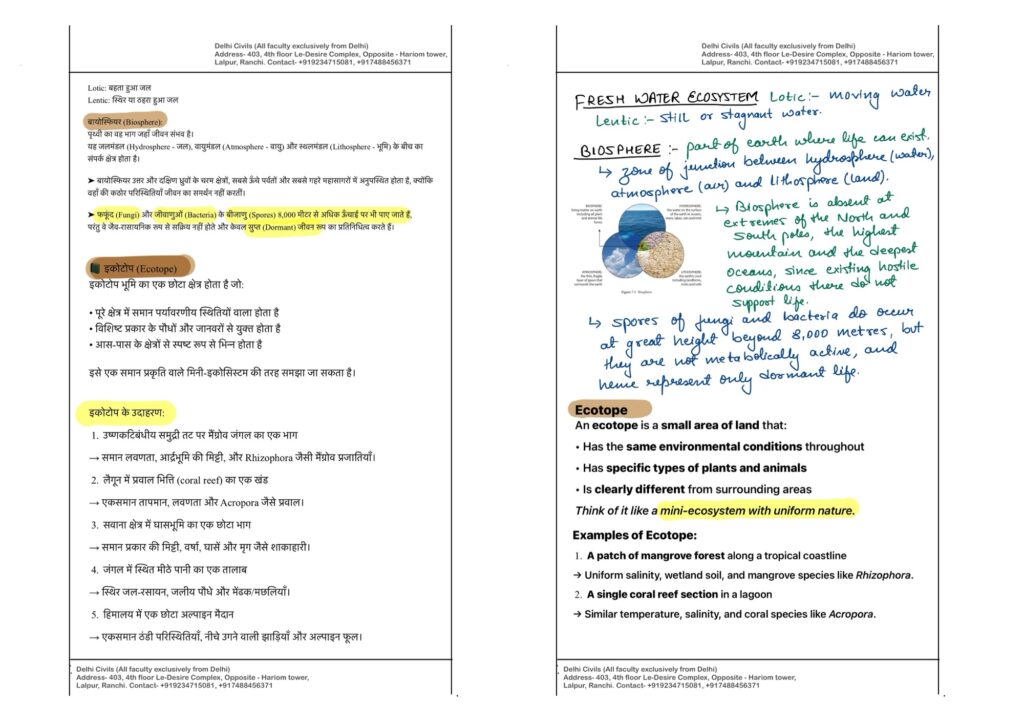 Delhi Civils (All faculty exclusively from Delhi)
Address- 403, 4th floor Le-Desire Complex, Opposite - Hariom tower,
Lalpur, Ranchi. Contact- +919234715081, +917488456371
Lotic: बहता हुआ जल
Lentic: स्थिर या ठहरा हुआ जल
बायोस्फियर (Biosphere):
पृथ्वी का वह भाग जहाँ जीवन संभव है।
यह जलमंडल (Hydrosphere - जल), वायुमंडल (Atmosphere - वायु) और स्थलमंडल (Lithosphere - भूमि) के बीच का
संपर्क क्षेत्र होता है।
➤ बायोस्फियर उत्तर और दक्षिण ध्रुवों के चरम क्षेत्रों, सबसे ऊँचे पर्वतों और सबसे गहरे महासागरों में अनुपस्थित होता है, क्योंकि
वहाँ की कठोर परिस्थितियाँ जीवन का समर्थन नहीं करतीं।
➤ फफूंद (Fungi) और जीवाणुओं (Bacteria) के बीजाणु (Spores) 8,000 मीटर से अधिक ऊँचाई पर भी पाए जाते हैं,
परंतु वे जैव-रासायनिक रूप से सक्रिय नहीं होते और केवल सुप्त (Dormant) जीवन रूप का प्रतिनिधित्व करते हैं।
इकोटोप (Ecotope)
इकोटोप भूमि का एक छोटा क्षेत्र होता है जो:
• पूरे क्षेत्र में समान पर्यावरणीय स्थितियों वाला होता है
• विशिष्ट प्रकार के पौधों और जानवरों से युक्त होता है
• आस-पास के क्षेत्रों से स्पष्ट रूप से भिन्न होता है
इसे एक समान प्रकृति वाले मिनी-इकोसिस्टम की तरह समझा जा सकता है।
इकोटोप के उदाहरण:
1. उष्णकटिबंधीय समुद्री तट पर मैंग्रोव जंगल का एक भाग
→ समान लवणता, आर्द्रभूमि की मिट्टी, और Rhizophora जैसी मैंग्रोव प्रजातियाँ।
2. लैगून में प्रवाल भित्ति (coral reef) का एक खंड
→ एकसमान तापमान, लवणता और Acropora जैसे प्रवाल।
3. सवाना क्षेत्र में घासभूमि का एक छोटा भाग
→ समान प्रकार की मिट्टी, वर्षा, घासें और मृग जैसे शाकाहारी।
4. जंगल में स्थित मीठे पानी का एक तालाब
→ स्थिर जल-रसायन, जलीय पौधे और मेंढक/मछलियाँ।
5. हिमालय में एक छोटा अल्पाइन मैदान
→ एकसमान ठंडी परिस्थितियाँ, नीचे उगने वाली झाड़ियाँ और अल्पाइन फूल।
Delhi Civils (All faculty exclusively from Delhi)
Address- 403, 4th floor Le-Desire Complex, Opposite - Hariom tower,
Lalpur, Ranchi. Contact- +919234715081, +917488456371
Delhi Civils (All faculty exclusively from Delhi)
Address- 403, 4th floor Le-Desire Complex, Opposite - Hariom tower,
Lalpur, Ranchi. Contact- +919234715081, +917488456371
FRESH WATER ECOSYSTEM Lotic :- moving water
Lentic :- still or stagnant water.
BIOSPHERE :- part of earth where life can exist.
↳ zone of junction between hydrosphere (water),
atmosphere (air) and lithosphere (land).
↳ Biosphere is absent at
extremes of the North and
South poles, the highest
mountain and the deepest
oceans, since existing hostile
conditions there do not
support life.
BIOSPHERE
HYDROSPHERE
ATMOSPHERE
LITHOSPHERE
↳ spores of fungi and bacteria do occur
at great height beyond 8,000 metres, but
they are not metabolically active, and
hence represent only dormant life.
Ecotope
An ecotope is a small area of land that:
• Has the same environmental conditions throughout
• Has specific types of plants and animals
• Is clearly different from surrounding areas
Think of it like a mini-ecosystem with uniform nature.
Examples of Ecotope:
1. A patch of mangrove forest along a tropical coastline
→ Uniform salinity, wetland soil, and mangrove species like Rhizophora.
2. A single coral reef section in a lagoon
→ Similar temperature, salinity, and coral species like Acropora.
Delhi Civils (All faculty exclusively from Delhi)
Address- 403, 4th floor Le-Desire Complex, Opposite - Hariom tower,
Lalpur, Ranchi. Contact- +919234715081, +917488456371